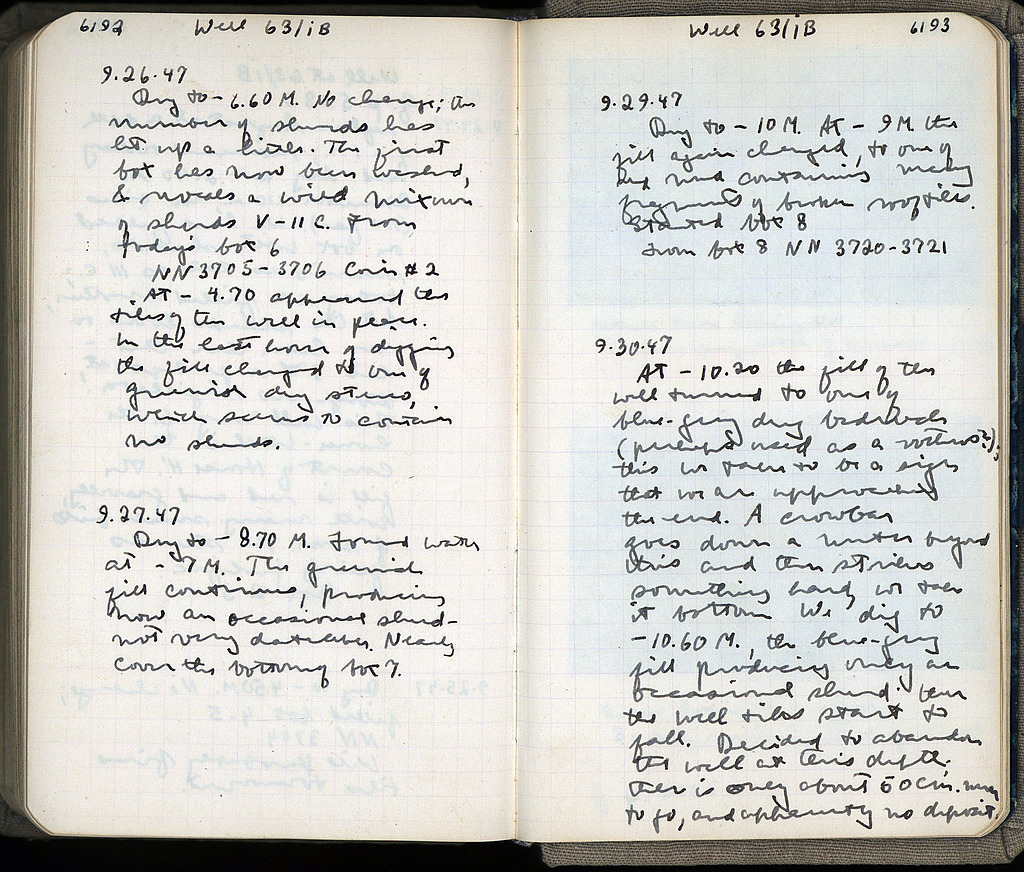 6192 Well 63/ΙΒ
9.26.47
Dug to - 6.60 M. No change; the
number of sherds has
let up a little. The first
box has now been washed,
& reveals a wild mixture
of sherds V-II C. From
today's box 6
NN 3705-3706 Coin #2
At - 4.70 appeared the
tiles of the well in place.
In the last hour of digging
the fill changed to one of
greenish dug stereo,
which seems to contain
no sherds.
9.27.47
Dug to - 8.70 M. Found water
at - 7 M. The greenish
fill continues, producing
now an occasional sherd -
not very dateable. Nearly
cover the bottom of box 7.
Well 63/ΙΒ 6193
9.29.47
Dug to - 10 M. At - 9 M. the
fill again changed, to one of
red mud containing many
fragments of broken rooftiles.
Started box 8
From box 8 NN 3720-3721
9.30.47
At - 10.20 the fill of the
well turned to one of
blue-gray dug bedrock
(perhaps used as a );
this we take to be a sign
that we are approaching
the end. A crowbar
goes down a meter beyond
this and then strikes
something hard, we take
it bottom. We dig to
-10.60 M., the blue-gray
fill producing only an
occasional sherd. Then
the well tiles start to
fall. Decided to abandon
the well at this depth.
There is only about 50 cm. more
to go, and apparently no deposit.